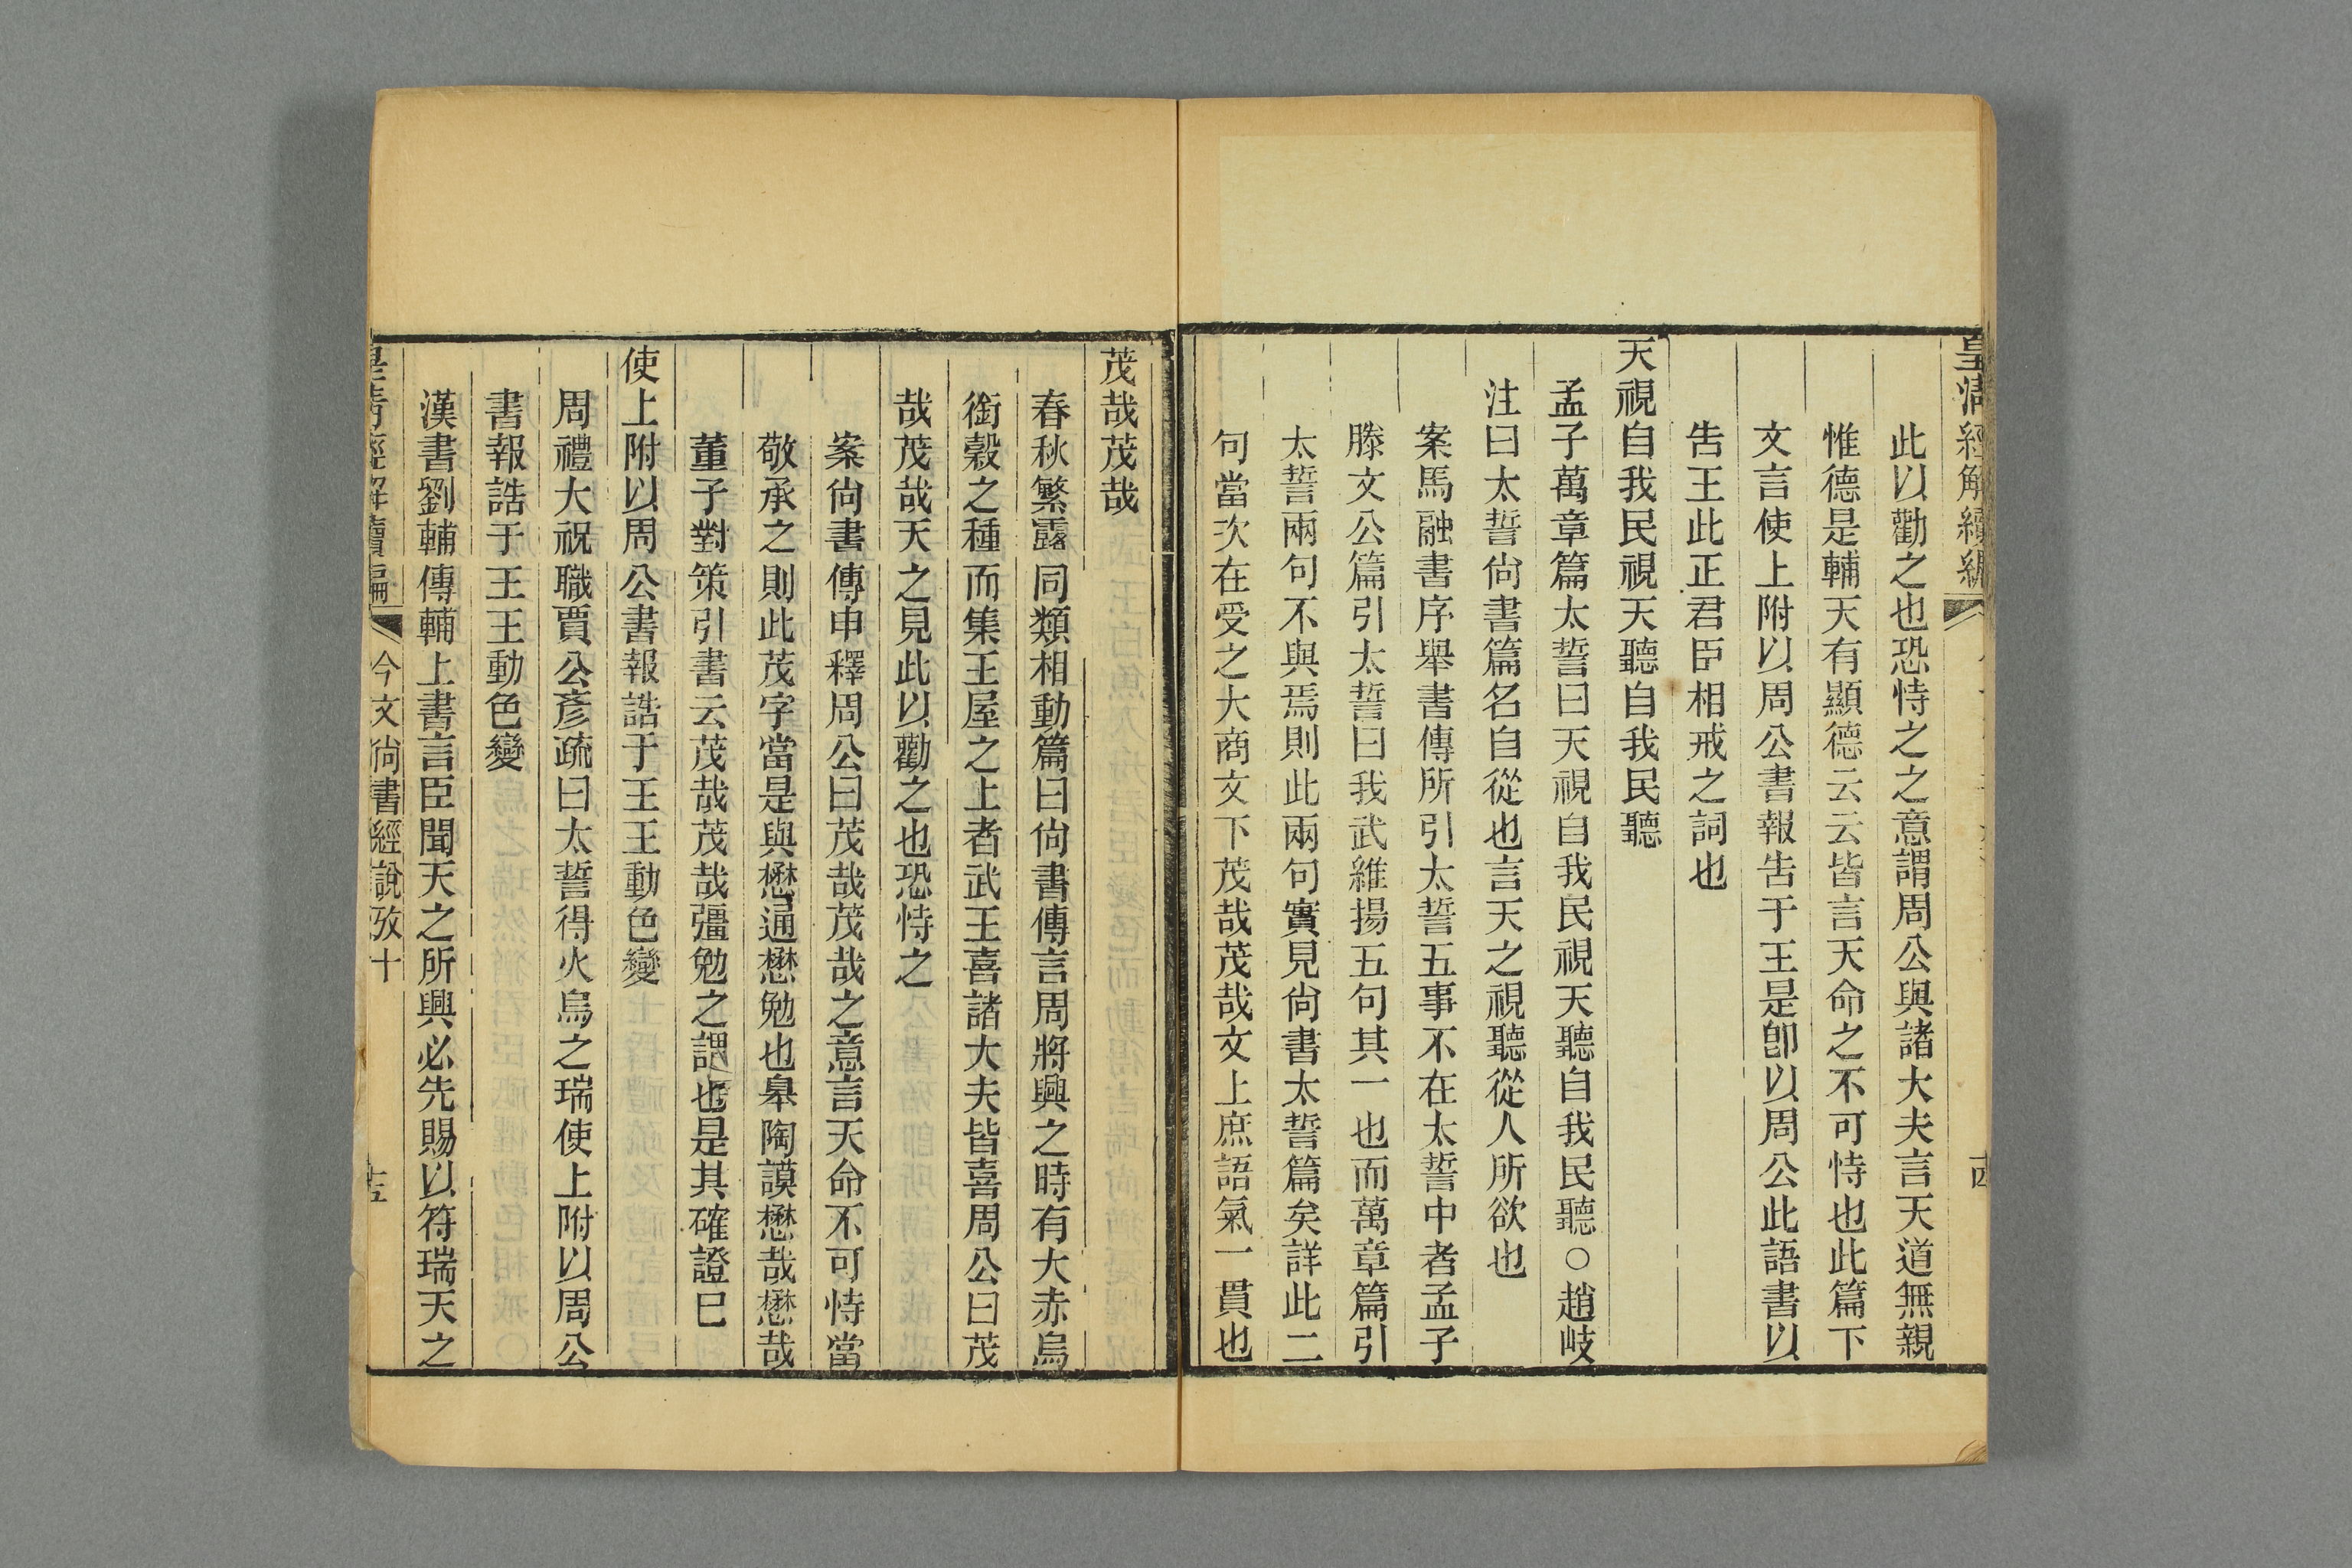 皇清經解續編
此以勸之也恐恃之之意謂周公與諸大夫言天道無親
惟德是輔天有顯德云云皆言天命之不可恃也此篇下
文言使上附以周公書報告于王是卽以周公此語書以
告王此正君臣相戒之詞也
天視自我民視天聽自我民聽
孟子萬章篇太誓曰天視自我民視天聽自我民聽○趙岐
注曰太誓尙書篇名自從也言天之視聽從人所欲也
案馬融書序舉書傳所引太誓五事不在太誓中者孟子
滕文公篇引太誓曰我武維揚五句其一也而萬章篇引
太誓兩句不與焉則此兩句實見尙書太誓篇矣詳此二
句當次在受之大商文下茂哉茂哉文上庶語氣一貫也
茂哉茂哉
春秋繁露同類相動篇曰尙書傳言周將興之時有大赤烏
銜穀之種而集王屋之上者武王喜諸大夫皆喜周公曰茂
哉茂哉天之見此以勸之也恐恃之
案尙書傳申釋周公曰茂哉茂哉之意言天命不可恃當
敬承之則此茂字當是與懋通懋勉也皋陶謨懋哉懋哉
董子對策引書云茂哉茂哉彊勉之謂也是其確證巳
使上附以周公書報誥于王王動色變
周禮大祝職賈公彥疏曰太誓得火烏之瑞使上附以周公
書報誥于王王動色變
漢書劉輔傳輔上書言臣聞天之所興必先賜以符瑞天之
皇清經解續編
今文尙書經說攷十
十五